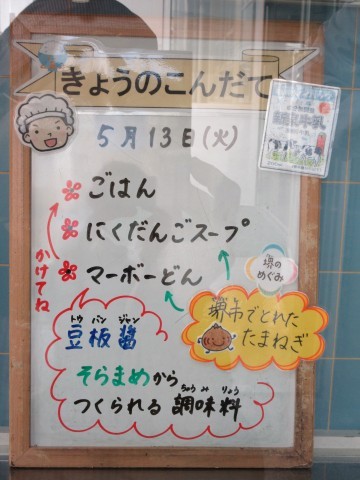 きょうのこんだて
5月13日(火)
ごはん
にくだんごスープ
マーボーどん
かけてね
堺の
めぐみ
堺市でとれた
たまねぎ
トウ バン ジャン
豆板醤
そらまめから
ちょう み りょう
つくられる 調味料